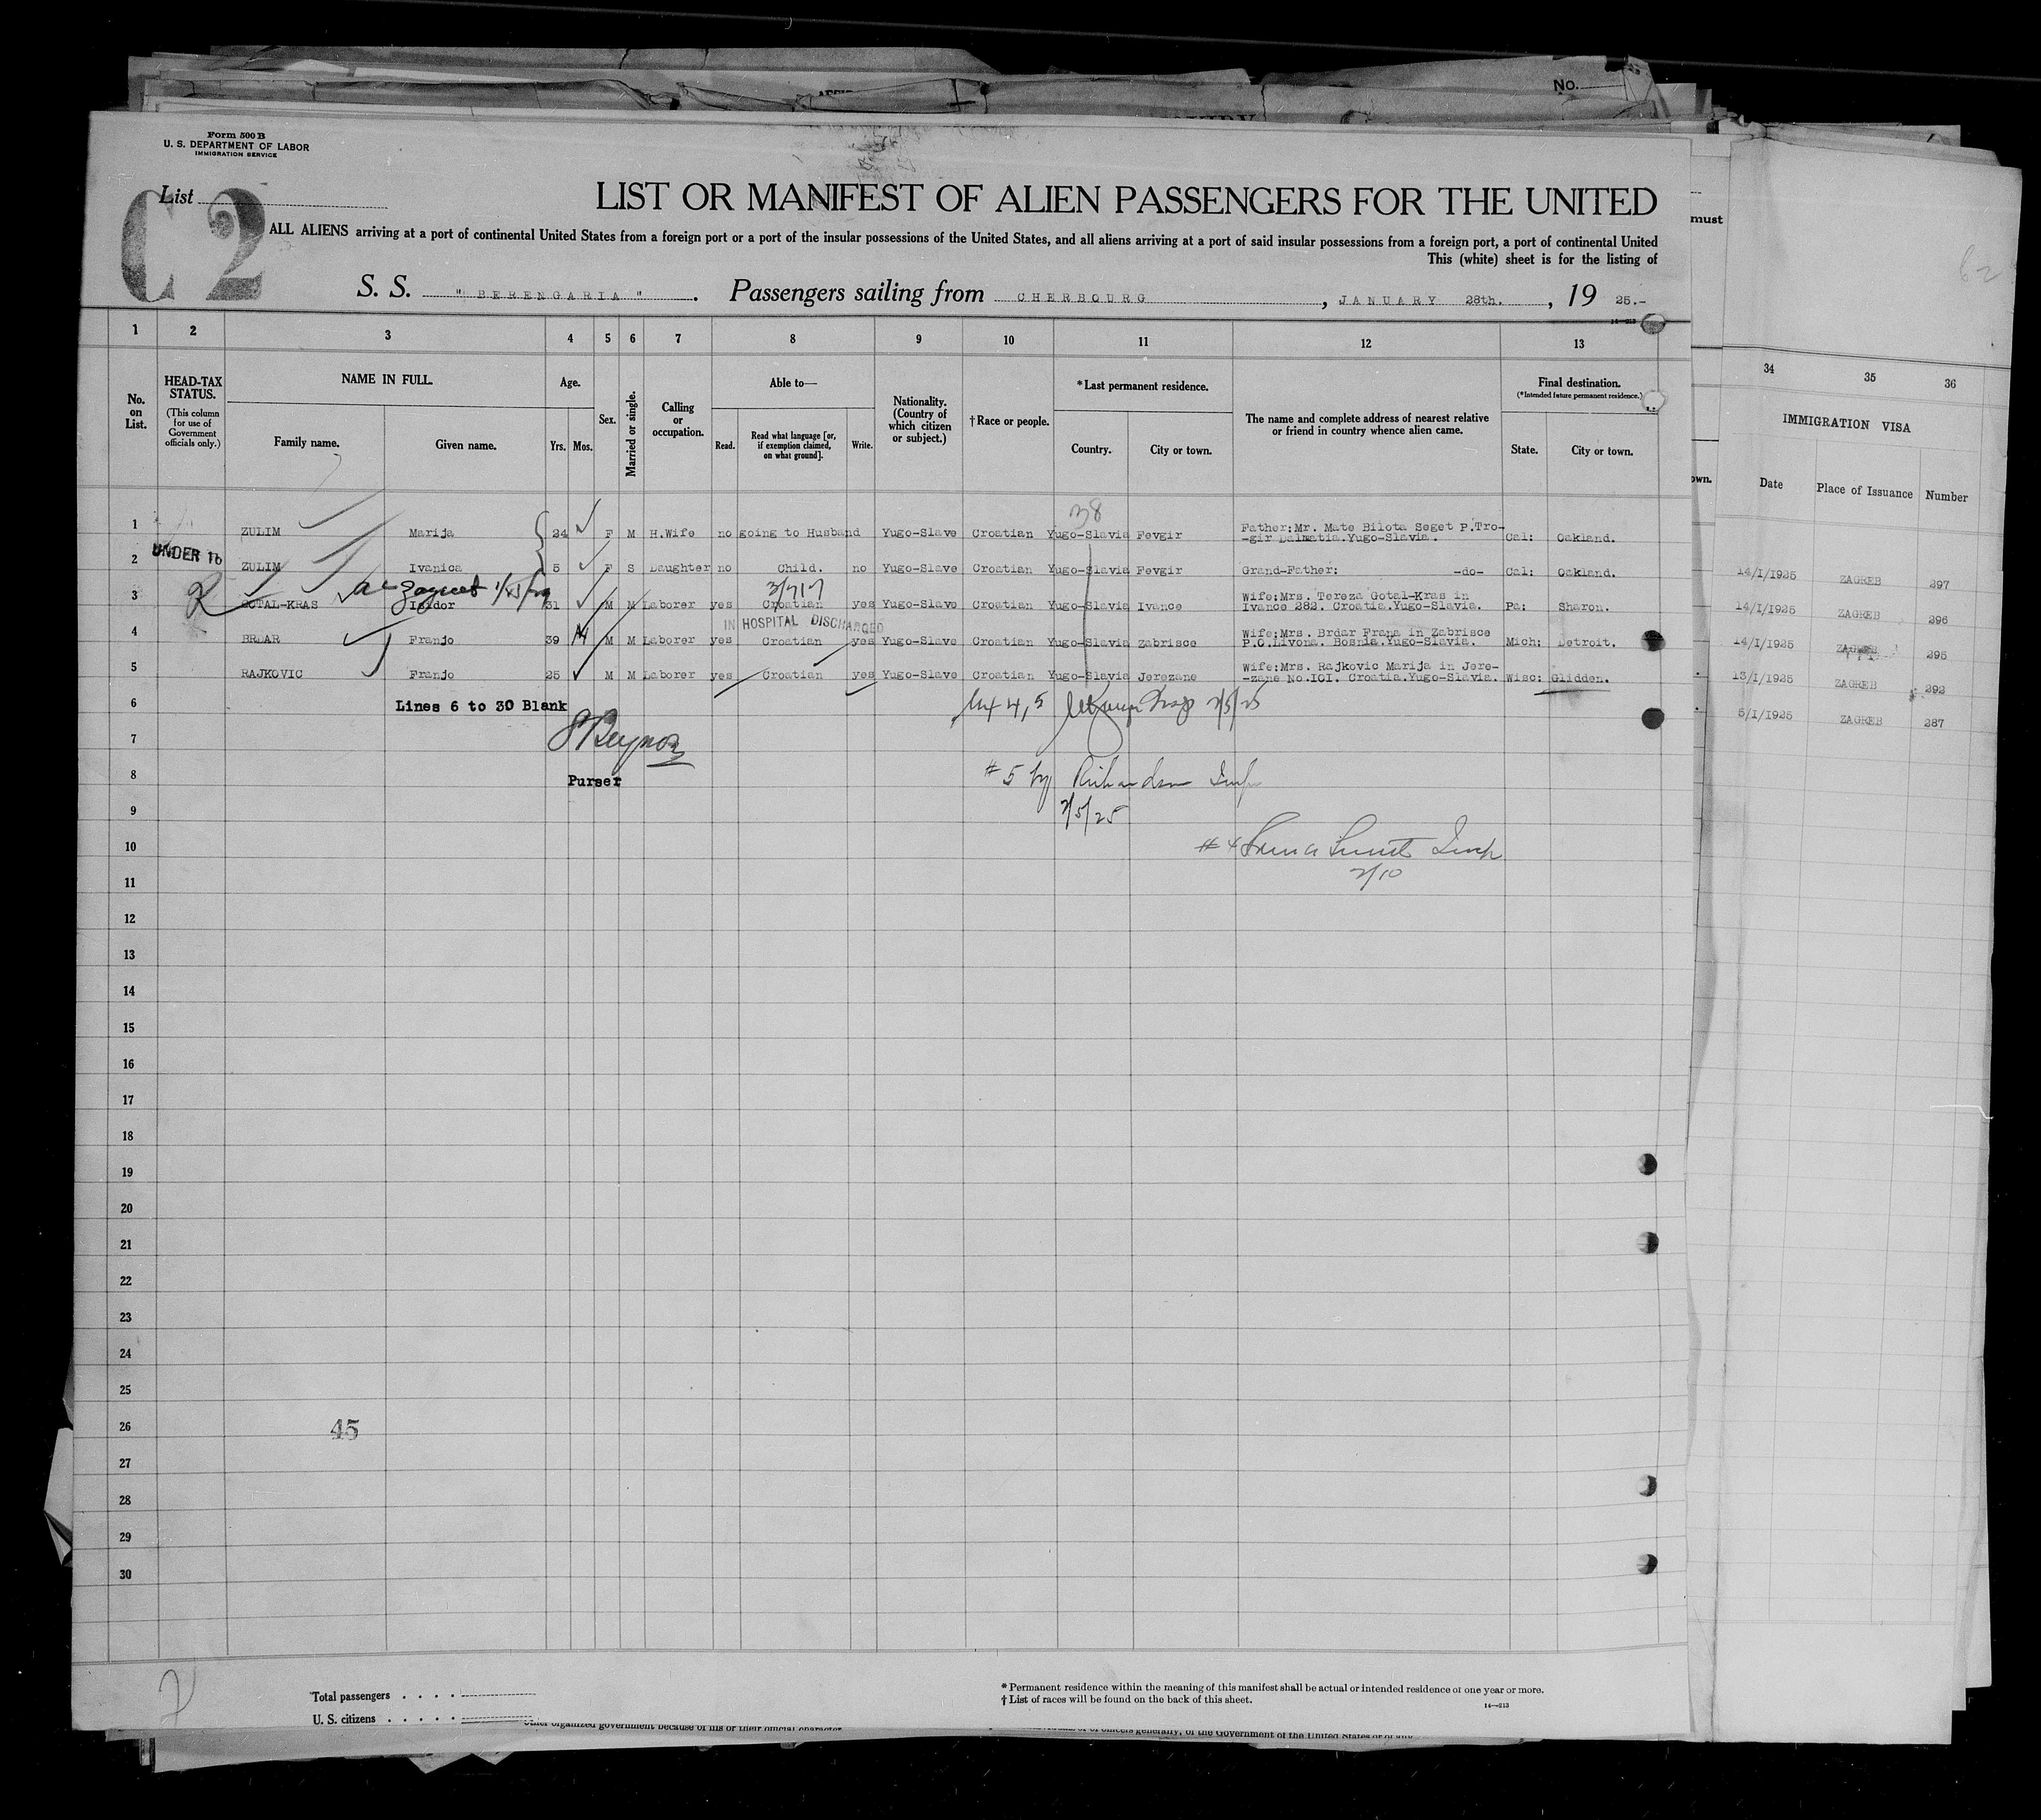 No.
Form 500 B
U. S. DEPARTMENT OF LABOR
IMMIGRATION SERVICE
List
C 2
LIST OR MANIFEST OF ALIEN PASSENGERS FOR THE UNITED
ALL ALIENS arriving at a port of continental United States from a foreign port or a port of the insular possessions of the United States, and all aliens arriving at a port of said insular possessions from a foreign port, a port of continental United
This (white) sheet is for the listing of
S. S. " BERENGARIA " . Passengers sailing from CHERBOURG , JANUARY 28th. , 19 25.-
14—213
1 2 3 4 5 6 7 8 9 10 11 12 13
No. on List.
HEAD-TAX STATUS.
(This column for use of Government officials only.)
NAME IN FULL.
Family name. Given name.
Age.
Yrs. Mos.
Sex.
Married or single.
Calling or occupation.
Able to—
Read. Read what language [or, if exemption claimed, on what ground]. Write.
Nationality. (Country of which citizen or subject.)
† Race or people.
* Last permanent residence.
Country. City or town.
The name and complete address of nearest relative or friend in country whence alien came.
Final destination.
(*Intended future permanent residence.)
State. City or town.
38
1 ZULIM Marija 24 F M H.Wife no going to Husband Yugo-Slave Croatian Yugo-Slavia Fevgir Father:Mr. Mate Bilota Seget P.Tro-
-gir Dalmatia.Yugo-Slavia. Cal: Oakland.
UNDER 16
2 ZULIM Ivanica 5 F S Daughter no Child. no Yugo-Slave Croatian Yugo-Slavia Fevgir Grand-Father: -do- Cal: Oakland.
3 GOTAL-KRAS Isidor 31 M M Laborer yes Croatian yes Yugo-Slave Croatian Yugo-Slavia Ivance Wife:Mrs. Tereza Gotal-Kras in
Ivance 282. Croatia.Yugo-Slavia. Pa: Sharon.
IN HOSPITAL DISCHARGED
4 BRDAR Franjo 39 M M Laborer yes Croatian yes Yugo-Slave Croatian Yugo-Slavia Zabrisce Wife:Mrs. Brdar Frana in Zabrisce
P.O.Livona. Bosnia.Yugo-Slavia. Mich: Detroit.
5 RAJKOVIC Franjo 25 M M Laborer yes Croatian yes Yugo-Slave Croatian Yugo-Slavia Jerezane Wife:Mrs. Rajkovic Marija in Jere-
-zane No.101. Croatia.Yugo-Slavia. Wisc: Glidden.
6 Lines 6 to 30 Blank
4, 5 2/5/25
7
8 Purser
# 5 by Richardson Insp
9 2/5/25
10 # 4 Insp
2/10
11
12
13
14
15
16
17
18
19
20
21
22
23
24
25
26 45
27
28
29
30
2
Total passengers . . . .
U. S. citizens . . . . .
* Permanent residence within the meaning of this manifest shall be actual or intended residence of one year or more.
† List of races will be found on the back of this sheet.
14—213
must
62
34 35 36
IMMIGRATION VISA
own. Date Place of Issuance Number
14/1/1925 ZAGREB 297
14/1/1925 ZAGREB 296
14/1/1925 ZAGREB 295
13/1/1925 ZAGREB 292
5/1/1925 ZAGREB 287
other organized government because of his or their official character
officers generally, of the Government of the United States or of any